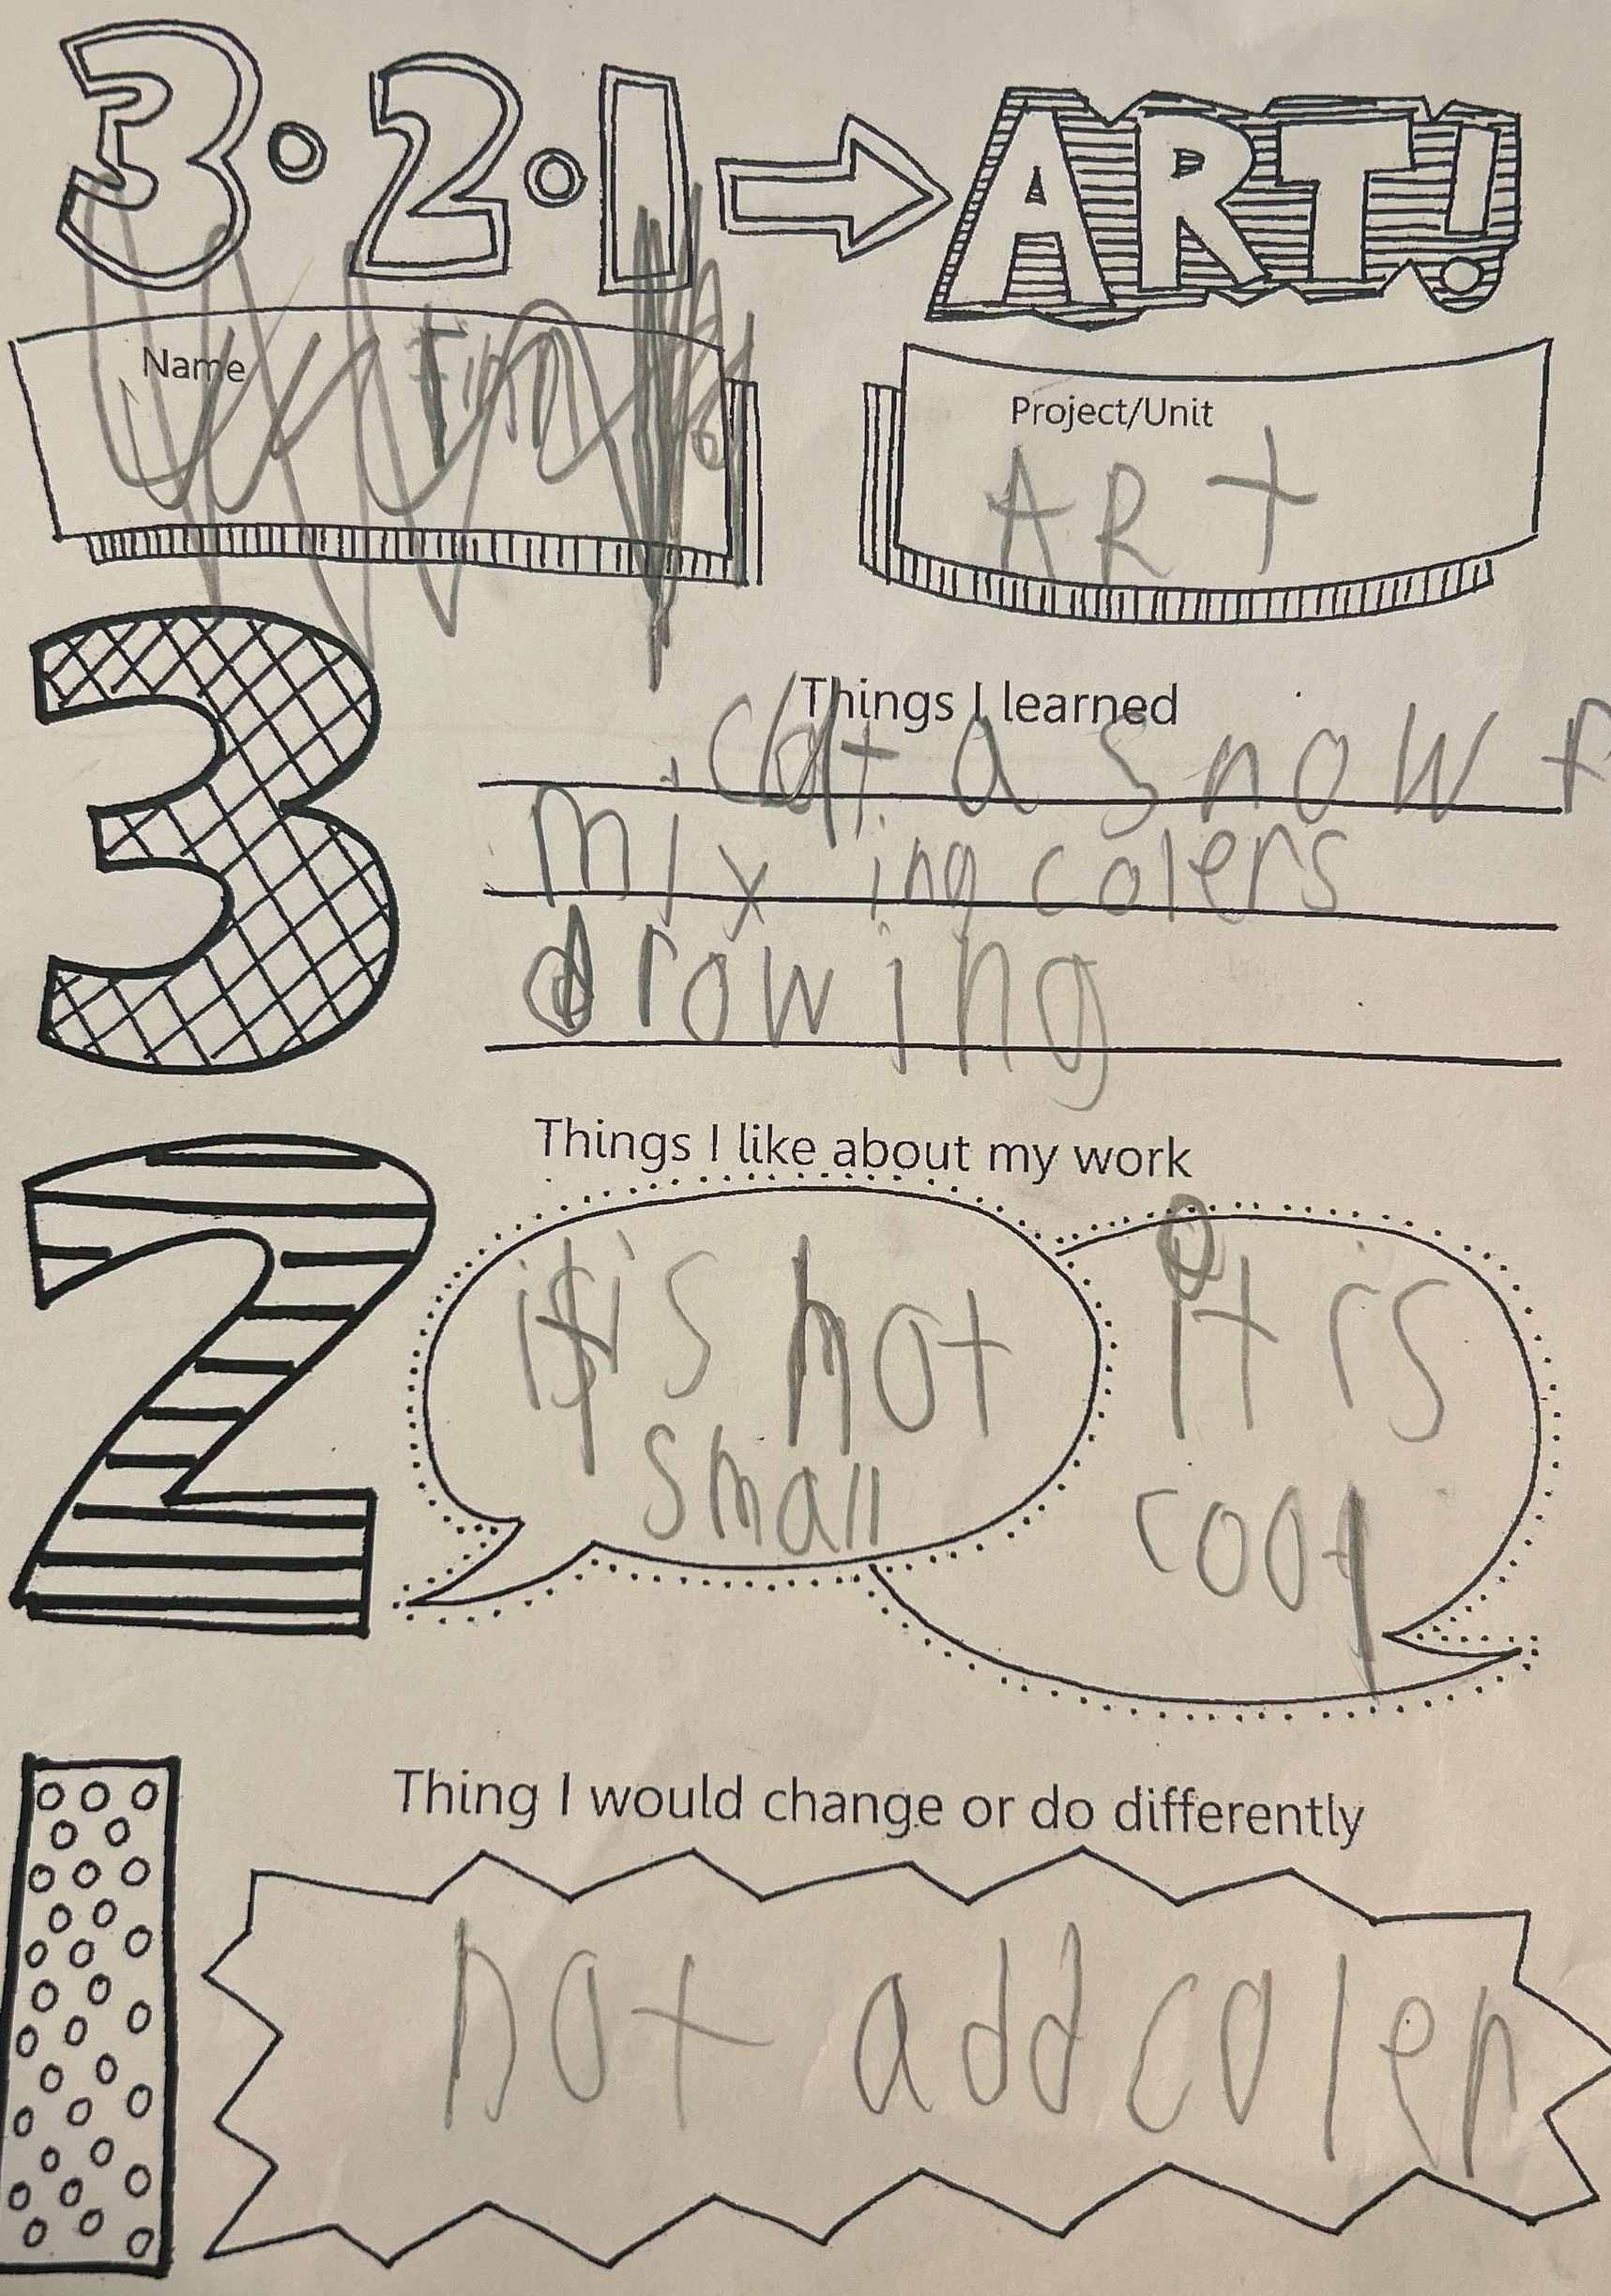 3·2·1 ART!
Name
Project/Unit
ART
Things I learned
cat a snow f
mixing colers
drowing
Things I like about my work
it's not
small
it is
cool
Thing I would change or do differently
not add coler